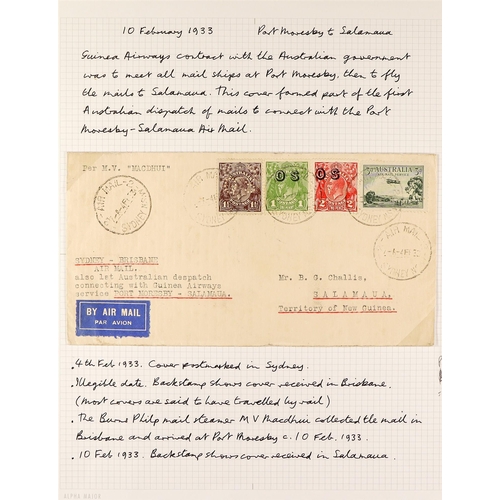 10 February 1933 Port Moresby to Salamaua
Guinea Airways contract with the Australian government
was to meet all mail ships at Port Moresby, then to fly
the mails to Salamaua. This cover formed part of the first
Australian dispatch of mails to connect with the Port
Moresby-Salamaua Air Mail.
Per M.V. "MACDHUI"
OS OS AUSTRALIA
1½ 1 2
SYDNEY - BRISBANE
AIR MAIL.
also 1st Australian despatch
connecting with Guinea Airways
service PORT MORESBY - SALAMAUA.
Mr. B. G. Challis,
SALAMAUA.
Territory of New Guinea.
BY AIR MAIL
PAR AVION
AIR MAIL
SYDNEY
.4th Feb 1933. Cover postmarked in Sydney.
.Illegible date. Backstamp shows cover received in Brisbane.
(Most covers are said to have travelled by rail)
.The Burns Philp mail steamer MV Macdhui collected the mail in
Brisbane and arrived at Port Moresby c. 10 Feb. 1933.
.10 Feb 1933. Backstamp shows cover received in Salamaua.